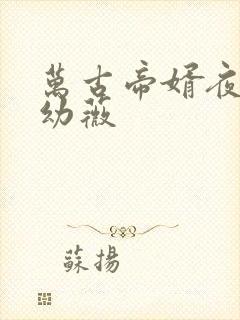 萬古帝婿夜
幼薇
蘇揚